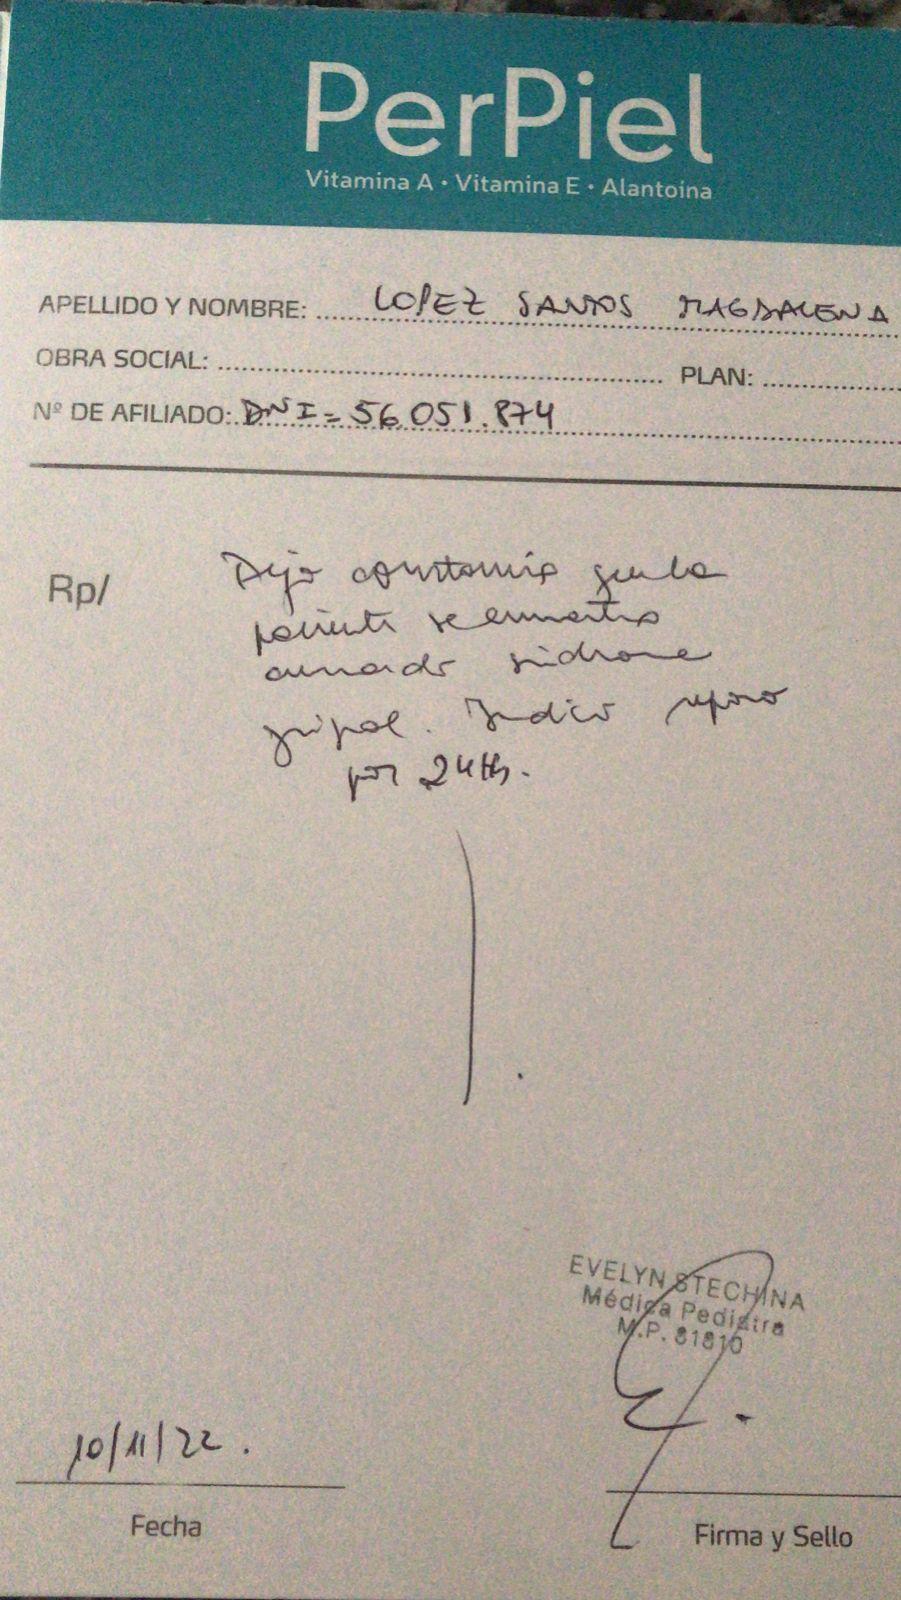 PerPiel
Vitamina A • Vitamina E • Alantoina
APELLIDO Y NOMBRE: LOPEZ SANTOS MAGDALENA
OBRA SOCIAL: PLAN:
Nº DE AFILIADO: DNI = 56.051.874
Rp/
Dejo constancia que la
paciente se encuentra
cursando sindrome
gripal. Indico reposo
por 24Hs.
EVELYN STECHINA
Médica Pediatra
M.P. 81810
10/11/22.
Fecha
Firma y Sello